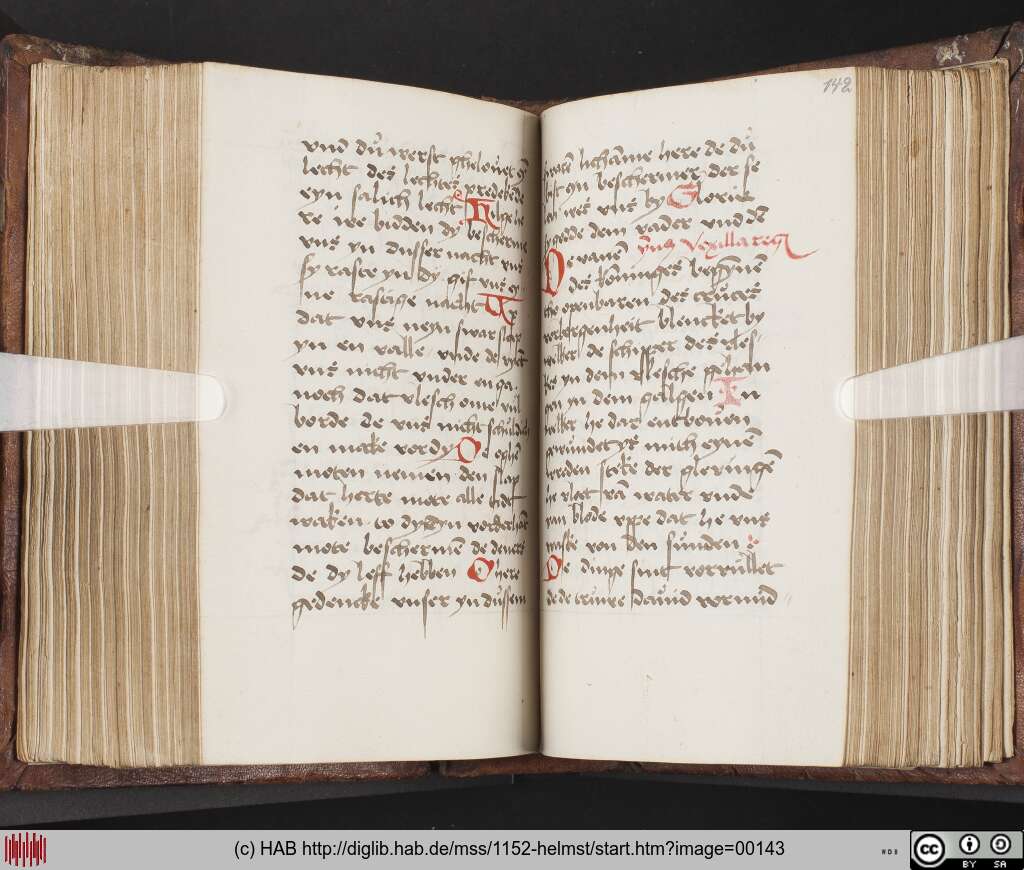 vnd du werst ghelouet eyn
lecht des lechtes predekende
eyn salich lecht Hilghe he
re we bidden dy bescherme
vns yn dusser nacht vns
sy raste yn dy gif vns ey
ne rastige nacht Up
dat vns neyn swar slap
yn en valle vnde de vyent
vns nicht vnder en ga
noch dat vlesch one vul
borde de vns nicht schuldich
en make vor dy De oghen
moten nemen den slap
dat herte mote alle tidt
waken to dy dyn vorderhant
mote beschermen de deners
de dy leff hebben O here
gedencke vnser yn dussem
swaren lichamme here de du
bist eyn beschermer der se
len wes vns by Glorie
sy gode dem vader vnd den
ymnus Vexilla regis
De vanen
des konninges
the openbaren des cruces
verborgenheit blencket by
welker de schipper des vles
kes yn dem vlesche gehan
gen yn dem galgen In
welker he dar ent bouen
gewundet mich eynen
wreden steke der glevingen
he vlot van water vnde
van blode vppe dat he vns
waske von den sunden
De dinge sint vorvullet
de de truwe dauid vor mid
142
(c) HAB http://diglib.hab.de/mss/1152-helmst/start.htm?image=00143
WDB
cc
BY SA